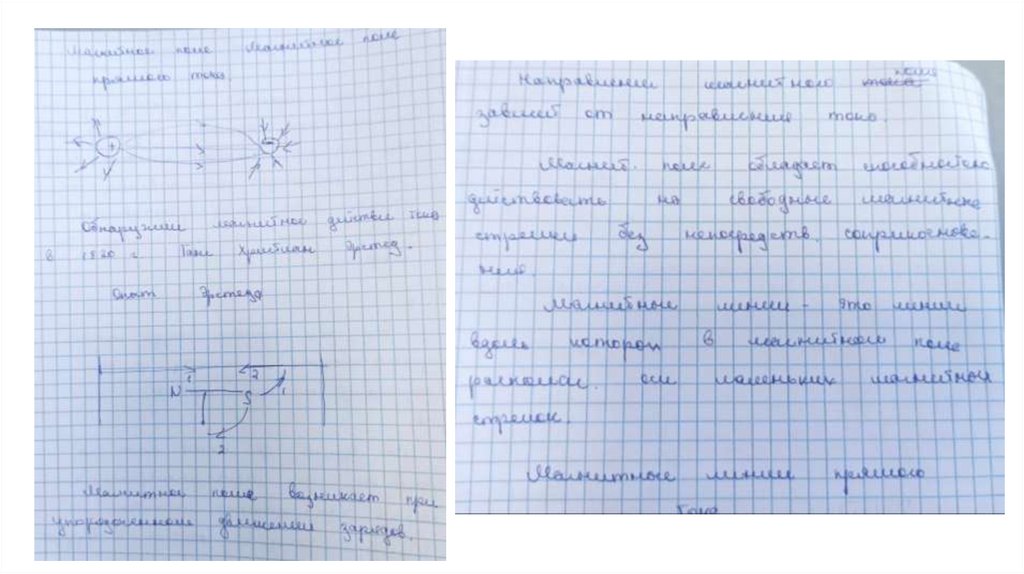 Магнитное поле Магнитное поле
прямого тока.
+
−
Обнаружили магнитное действие тока
в 1820 г. Ганс Христиан Эрстед.
Опыт Эрстеда
1 2
N S 1
2
Магнитное поле возникает при
упорядоченном движении зарядов.
Направление магнитного поля
зависит от направления тока.
Магнит. поле обладает способностью
действовать на свободные магнитные
стрелки без непосредств. соприкоснове-
ния.
Магнитные линии - это линии
вдоль которой в магнитном поле
располож. оси маленьких магнитной
стрелок.
Магнитные линии прямого
тока